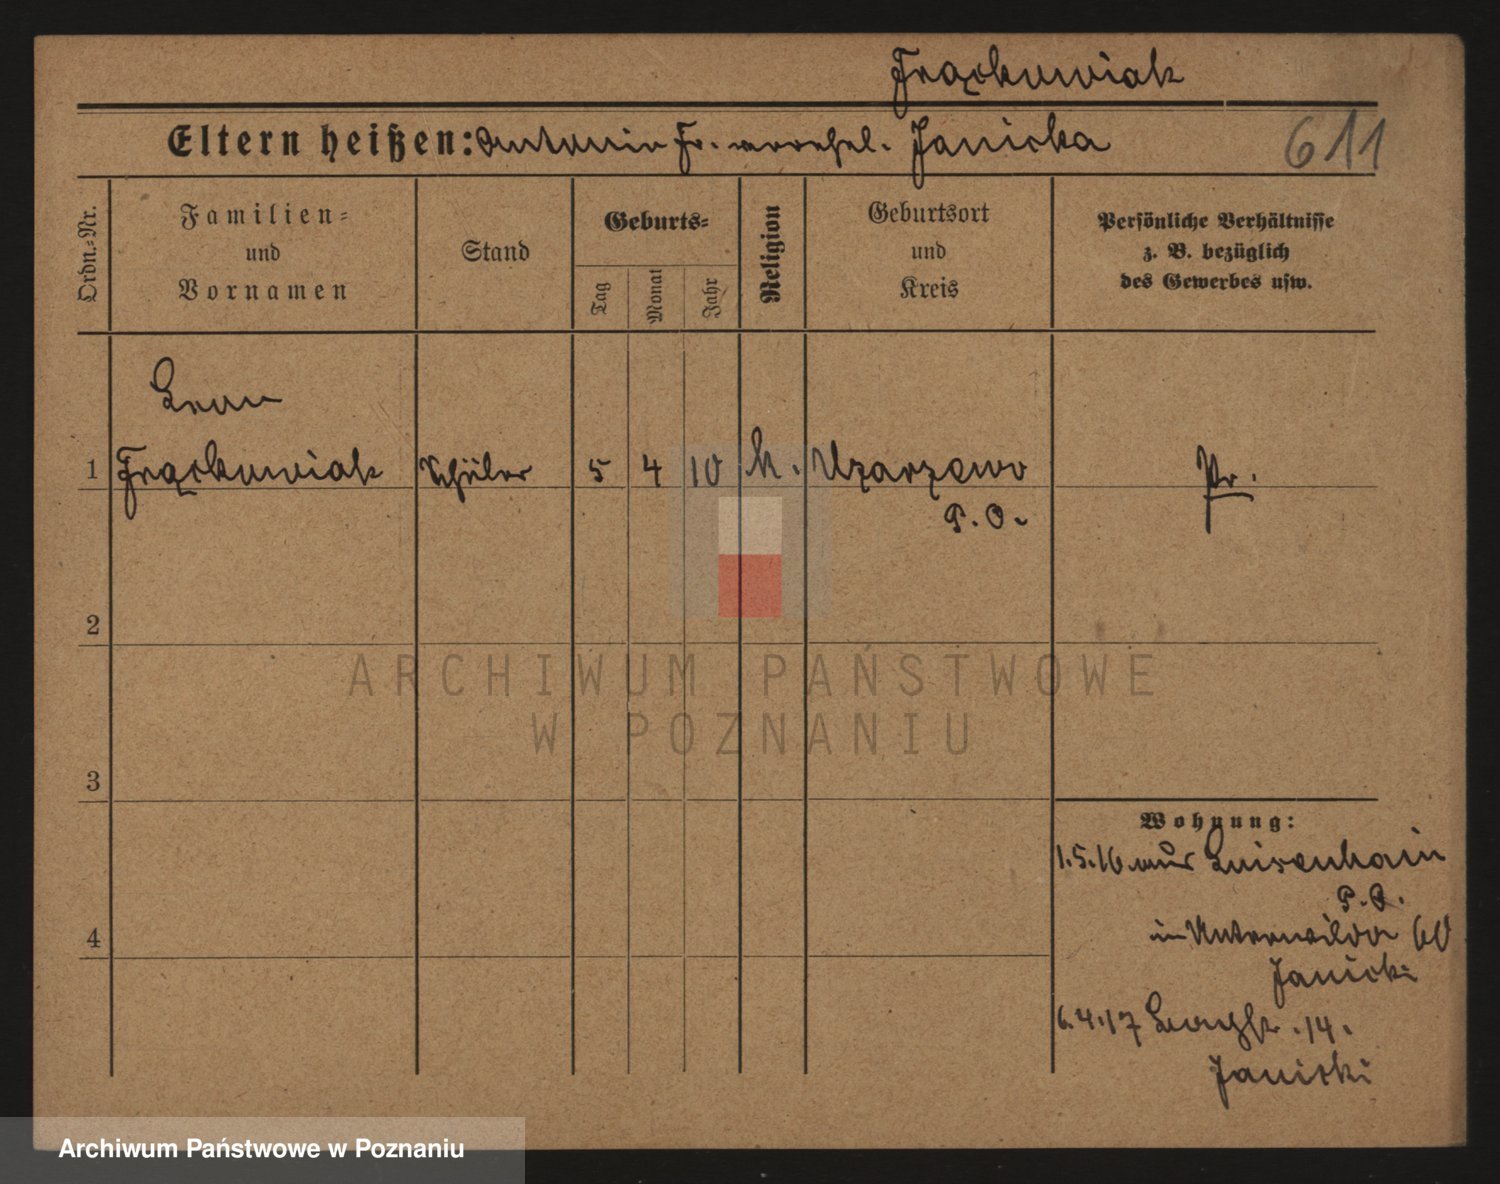 Frąckowiak
Eltern heißen: Antonie Fr. verehel. Janicka
611
Ordn.-Nr.
Familien-
und
Vornamen
Stand
Geburts-
Tag
Monat
Jahr
Religion
Geburtsort
und
Kreis
Persönliche Verhältnisse
z. B. bezüglich
des Gewerbes usw.
Leon
1 Frąckowiak Schüler 5 4 10 k. Uzarzewo Pr.
P. O.
2
ARCHIWUM PAŃSTWOWE
W POZNANIU
3
Wohnung:
1.5.16 aus Luisenhain
P. O.
4
in Unterwilda 60
Janicki
6.4.17 14.
Janicki
Archiwum Państwowe w Poznaniu